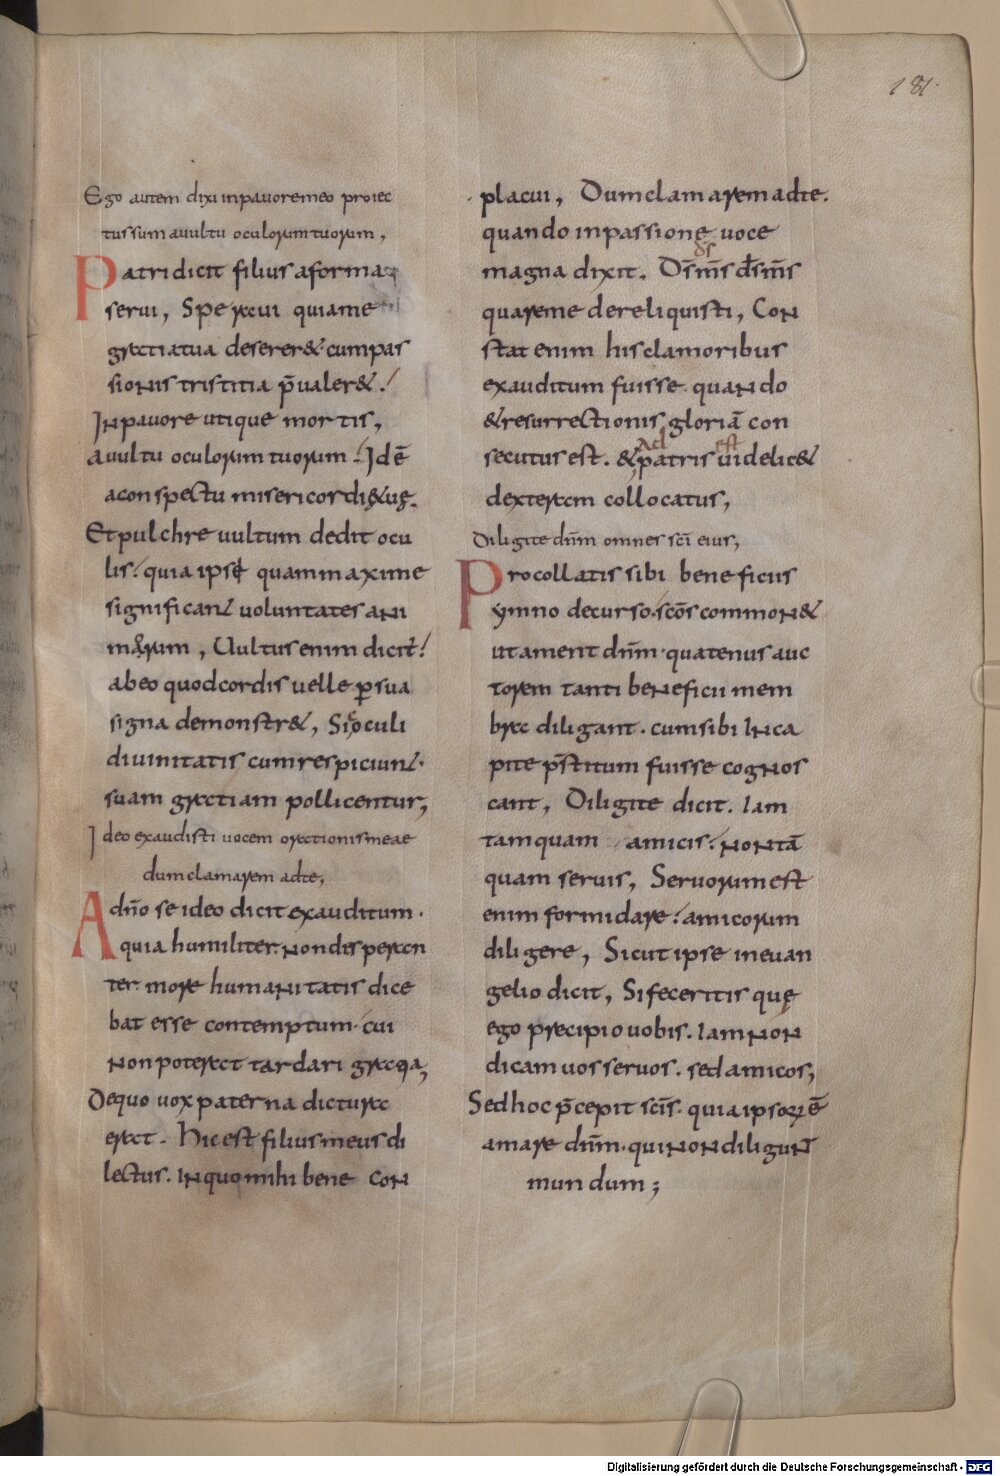 181
Ego autem dixi inpauore meo proiec
tus sum a uultu oculorum tuorum,
Patri dicit filius a forma
serui, Speraui quia me
gratia tua deserer& cum pas
sionis tristitia p̄ualer&.
In pauore utique mortis,
a uultu oculorum tuorum. Idē
a conspectu misericordiȩ tuȩ.
Et pulchre uultum dedit ocu
lis. quia ipsi quam maxime
significant uoluntates ani
marum, Uultus enim dicit.
ab eo quod cordis uelle ꝑ sua
signa demonstr&, Sic oculi
diuinitatis cum respiciunt.
suam gratiam pollicentur,
Ideo exaudisti uocem orationis meae
dum clamarem ad te,
A dn̄o se ideo dicit exauditum.
quia humiliter. non disperan
ter more humanitatis dice
bat esse contemptum. cui
non poterat tardari gratia,
De quo uox paterna dictura
erat. Hic est filius meus di
lectus. in quo mihi bene con
placui, Dum clamarem ad te.
quando in passione uoce
magna dixit. Ds̄ ms̄ ds̄ ms̄
ds
quare me dereliquisti, Con
stat enim his clamoribus
exauditum fuisse. quando
& resurrectionis gloriā con
secutus est. & patris uidelic&
ad est
dexteram collocatus,
Diligite dn̄m omnes sc̄i eius,
Pro collatis sibi beneficiis
ymno decurso. sc̄os common&
ut ament dn̄m. quatenus auc
torem tanti beneficii mem
bra diligant. cum sibi in ca
pite p̄stitum fuisse cognos
cant, Diligite dicit. Iam
tamquam amicis. non tā
quam seruis, Seruorum est
enim formidare. amicorum
diligere, Sicut ipse in euan
gelio dicit, Si feceritis quȩ
ego precipio uobis. iam non
dicam uos seruos. sed amicos,
Sed hoc p̄cepit sc̄is. quia ipsorū ē
amare dn̄m. qui non diligunt
mundum;
Digitalisierung gefördert durch die Deutsche Forschungsgemeinschaft - DFG